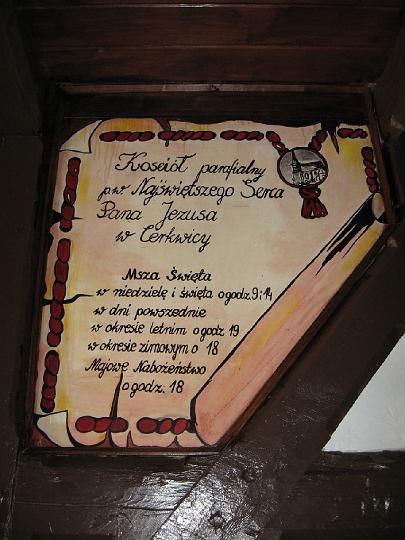 Kościół parafialny
pw Najświętszego Serca
Pana Jezusa
w Cerkwicy
Msza Święta
w niedzielę i święta o godz. 9 i 14
w dni powszednie
w okresie letnim o godz 19
w okresie zimowym o 18
Majowe Nabożeństwo
o godz. 18